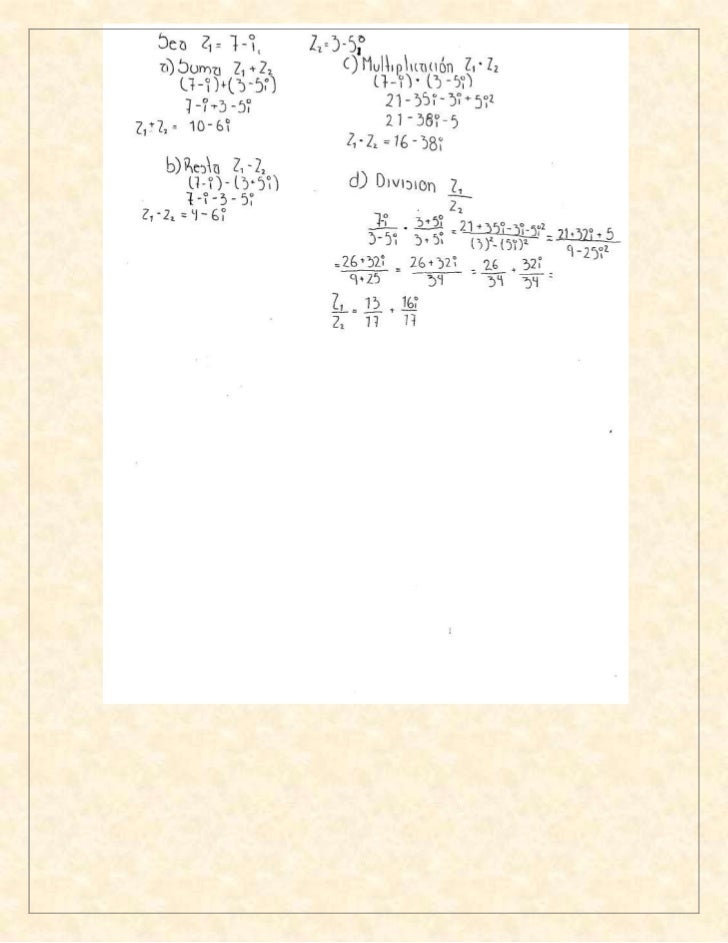 Sea Z₁ = 7-i, Z₂ = 3-5i
a) Suma Z₁+Z₂
(7-i)+(3-5i)
7-i+3-5i
Z₁+Z₂ = 10-6i
b) Resta Z₁-Z₂
(7-i)-(3+5i)
7-i-3-5i
Z₁-Z₂ = 4-6i
c) Multiplicación Z₁·Z₂
(7-i)·(3-5i)
21-35i-3i+5i²
21-38i-5
Z₁·Z₂ = 16-38i
d) Division Z₁/Z₂
7i/3-5i · 3+5i/3+5i = 21+35i-3i-5i²/(3)²-(5i)² = 21+32i+5/9-25i²
= 26+32i/9+25 = 26+32i/34 = 26/34 + 32i/34 =
Z₁/Z₂ = 13/17 + 16i/17